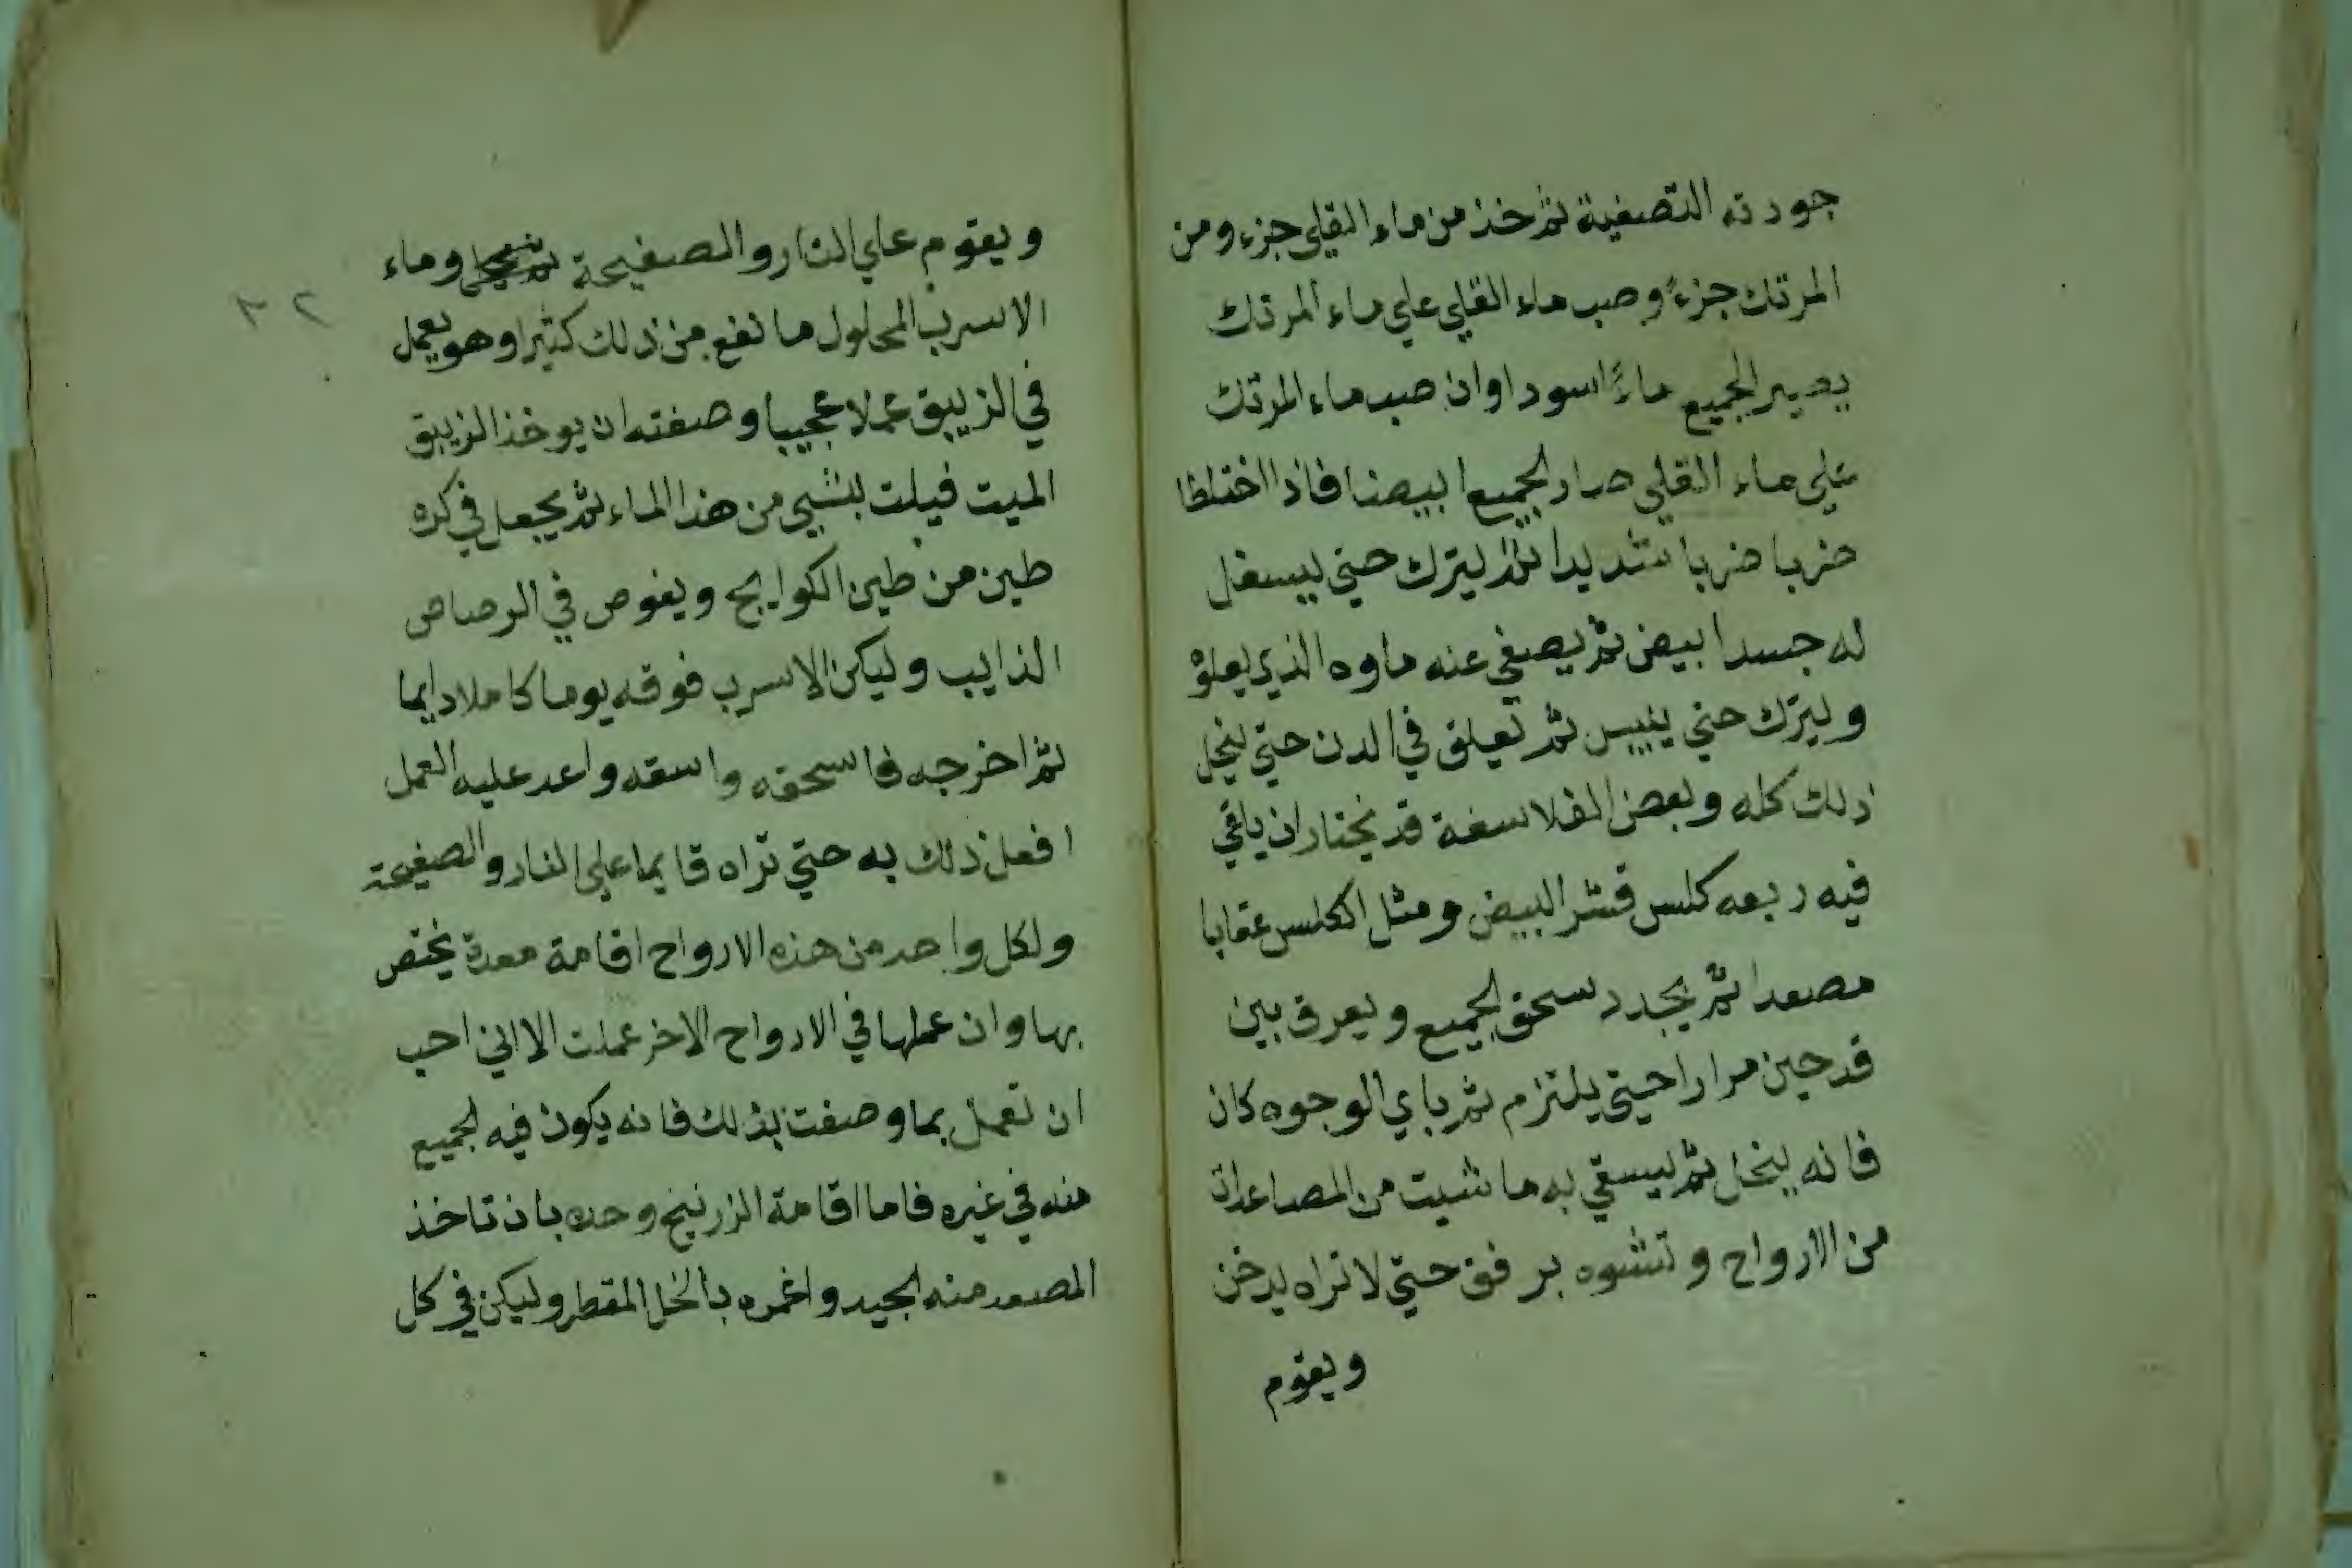 جودته التصفية ثم خذ من ماء القلي جزء ومن
المرتك جزءً وصب ماء القلي علي ماء المرتك
يصير الجميع ماءً اسودا وان صب ماء المرتك
علي ماء القلي صار الجميع ابيضا فاذا اختلطا
ضربا ضربا شديدا ثم ليترك حتي يسفل
له جسدا بيض ثم يصفي عنه ماوه الذي يعلوه
وليترك حتي ييبس ثم تعلق في الدن حتي ينحل
ذلك كله وبعض الفلاسفة قد يختار ان ياقي
فيه ربعه كلس قشر البيض ومثل الكلس عقابا
مصعدا ثم يجدد سحق الجميع ويعرق بين
قدحين مرارا حيتي يلتزم ثم باي الوجوه كان
فانه ينحل ثم ليسقي به ما شيت من المصاعدات
من الارواح وتشوه برفق حتي لا تراه يدخن
ويقوم
ويقوم علي النار والصفيحة وماء
الاسرب المحلول ما نفع من ذلك كثيرا وهو يعمل
في الزيبق عملا عجيبا وصفته ان يوخذ الزيبق
الميت فيلت بشي من هذا الماء ثم يجعل في كره
طين من طين الكوايج ويغوص في الرصاص
الذايب وليكن الاسرب فوقه يوما كاملا دايما
ثم اخرجه فاسحقه واسقه واعد عليه العمل
افعل ذلك به حتي تراه قايما علي النار والصفيحة
ولكل واحد من هذه الارواح اقامة معدة يختص
بها وان عملها في الارواح الاخر عملت الا اني احب
ان تعمل بما وصفت بذلك فانه يكون فيه الجميع
منه في غيره فاما اقامة الزرنيخ وحده بان تاخذ
المصعد منه الجيد واغمره بالخل المقطر وليكن في كل
٣٢